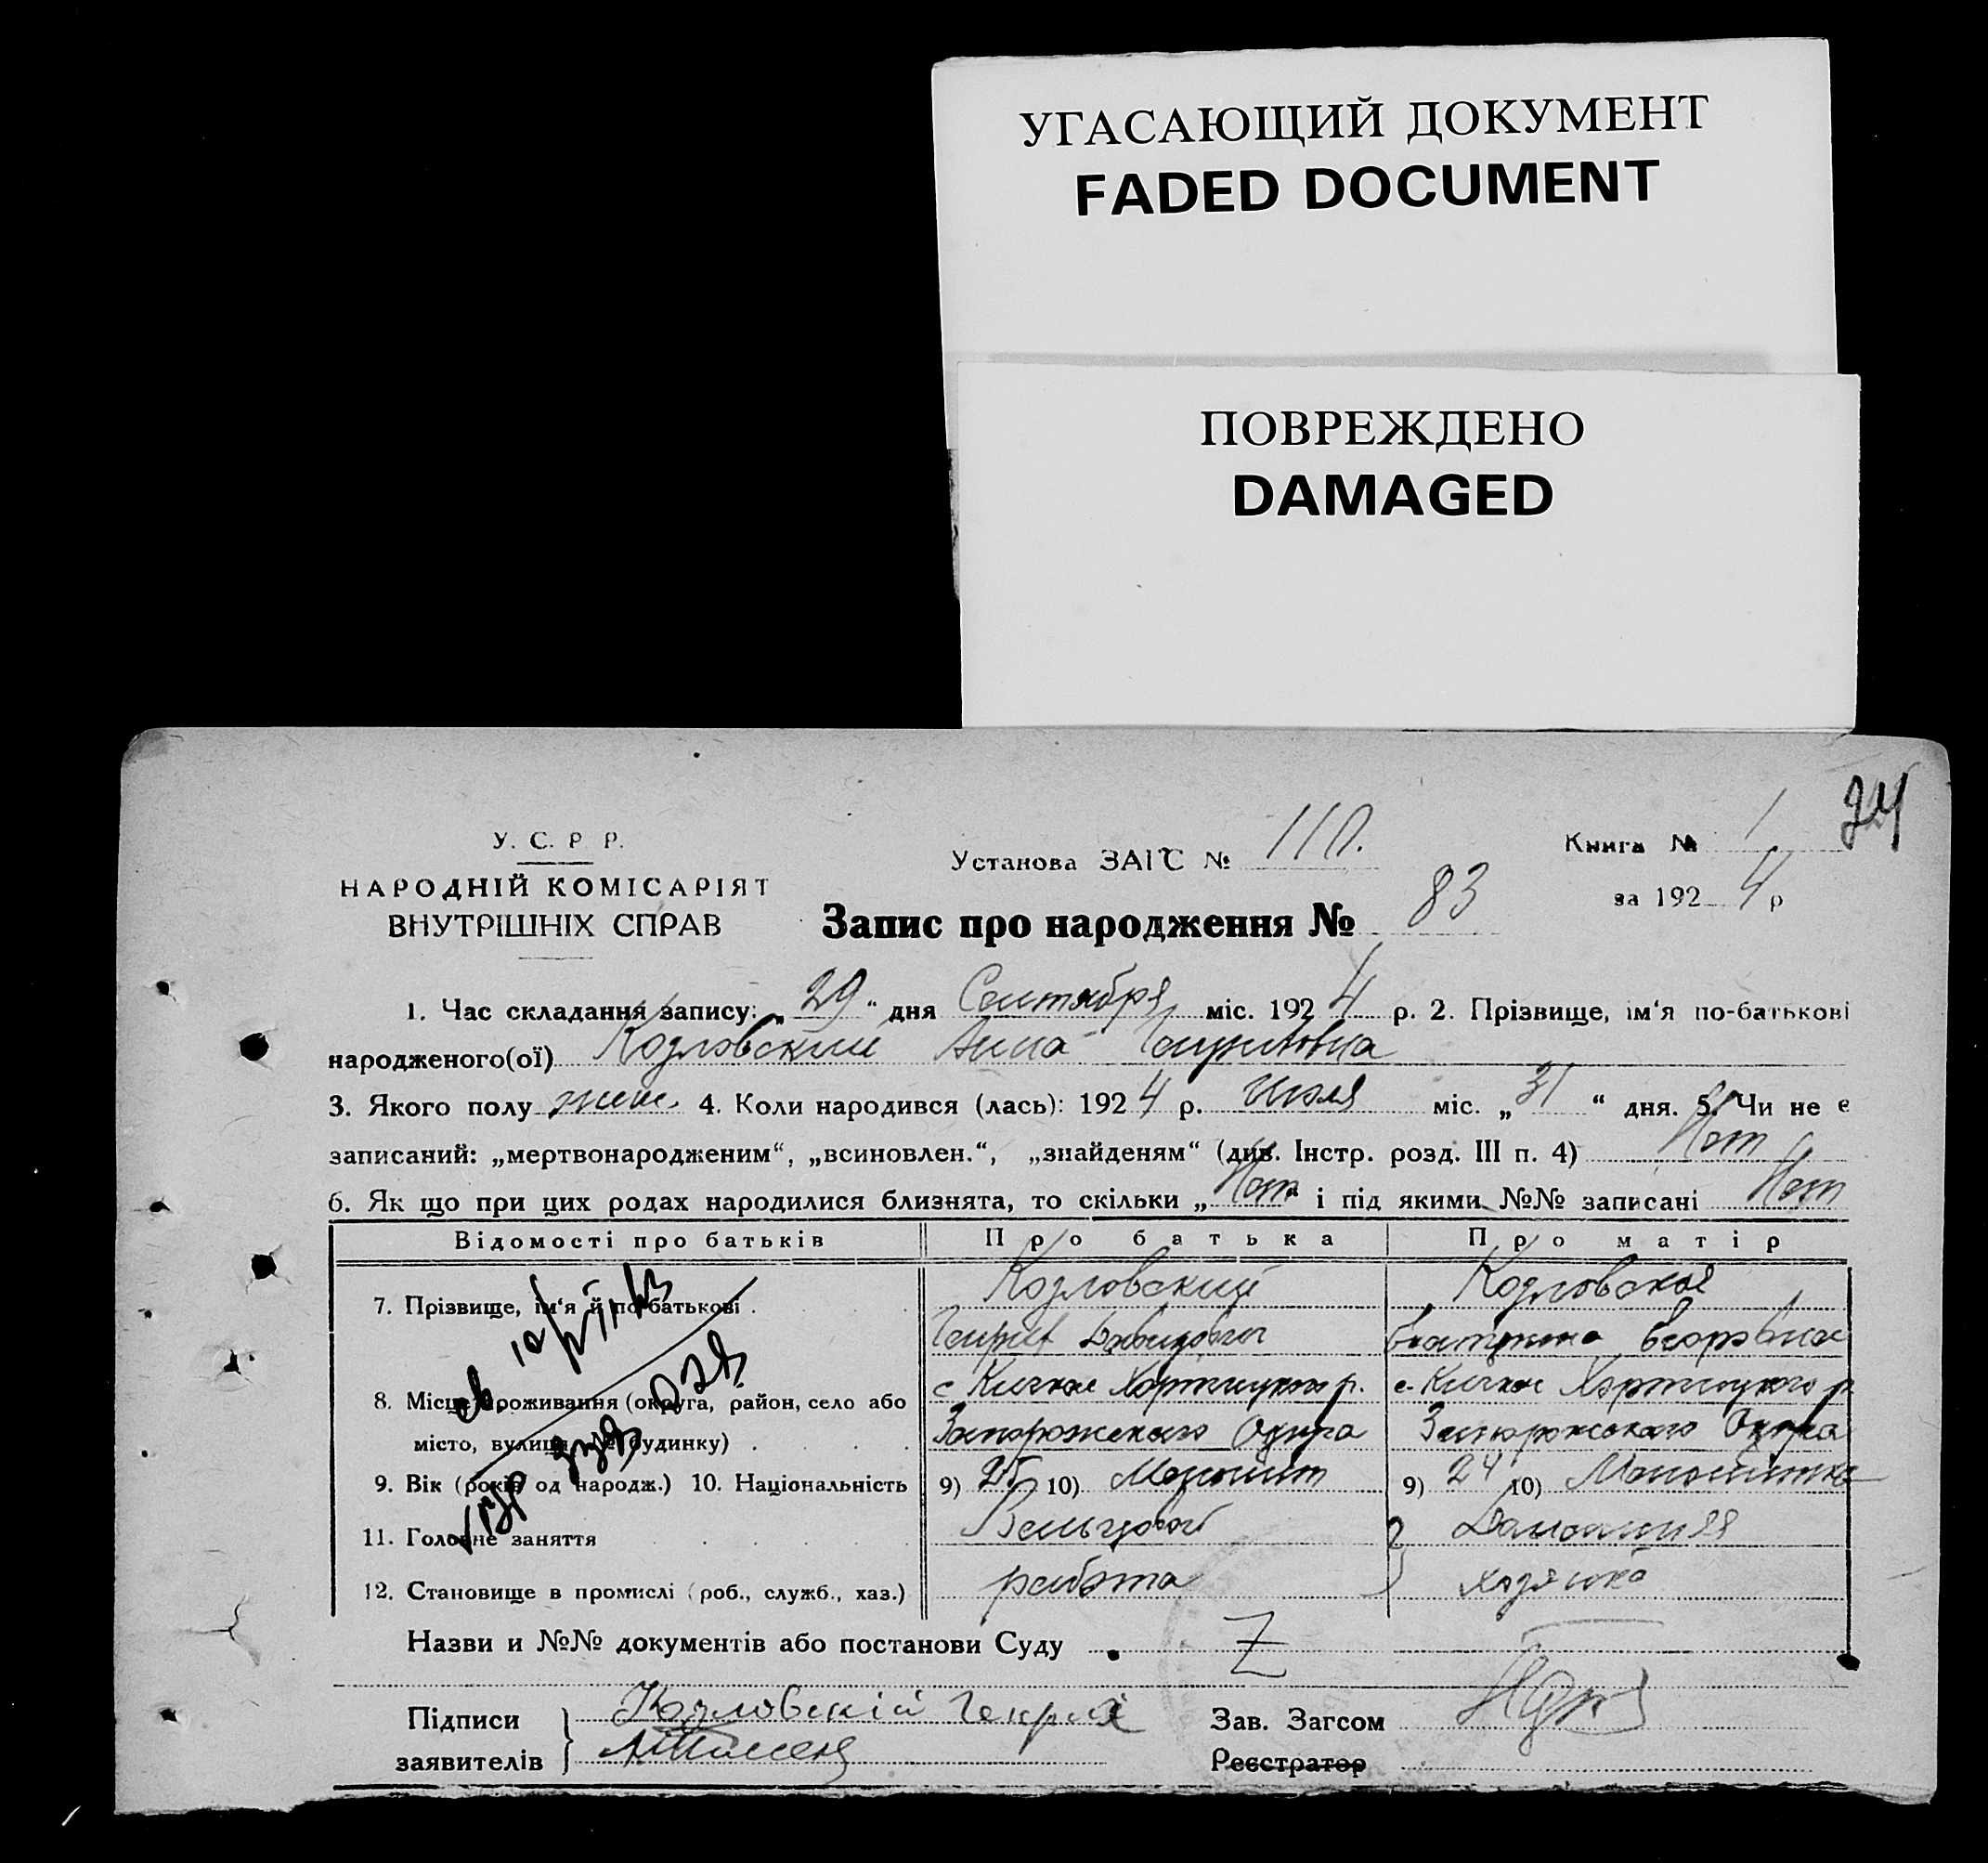 УГАСАЮЩИЙ ДОКУМЕНТ
FADED DOCUMENT
ПОВРЕЖДЕНО
DAMAGED
У. С. Р Р.
НАРОДНІЙ КОМІСАРІЯТ
ВНУТРІШНІХ СПРАВ
Установа ЗАГС № 110.
Книга № 1
за 1924 р
Запис про народження № 83
1. Час складання запису: „29“ дня Сентября міс. 1924 р. 2. Прізвище, ім‘я по-батькові
народженого(ої) Козловский Анна Генриховна
3. Якого полу жен. 4. Коли народився (лась): 1924 р. Июля міс. „31“ дня. 5. Чи не є
записаний: „мертвонародженим“, „всиновлен.“, „знайденям“ (див. Інстр. розд. III п. 4) Нет
6. Як що при цих родах народилися близнята, то скільки „Нет“ і під якими №№ записані Нет
Відомості про батьків Про батька Про матір
7. Прізвище, ім‘я й по батькові . Козловский Козловская
Генрих Давидович Екатерина Егоровна
8. Місце проживання (округа, район, село або с Кичкас Хортицкого р. с. Кичкас Хортицкого р
місто, вулиця, № будинку) . Запорожского Округа Запорожского Округа
9. Вік (років од народж.) 10. Національність 9) 25 10) Менонит 9) 24 10) Менонитка
11. Головне заняття Домашняя
12. Становище в промислі (роб., служб., хаз.) работа хозяйка
Назви и №№ документів або постанови Суду . Z
Підписи Козловскій Генрих
заявителів
Зав. Загсом
Реєстратор